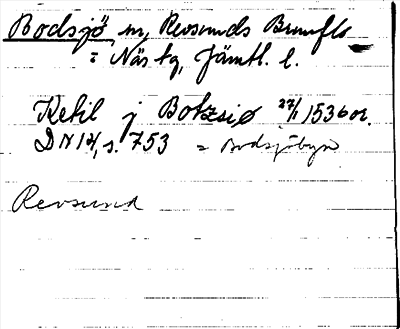 Bodsjö sn, Revsunds Brunflo
= Näs tg, Jämtl. l.
Ketil j Botzsiø 27/1 1536 or.
DN 14, s. 753 = Bodsjöbyn
Revsund